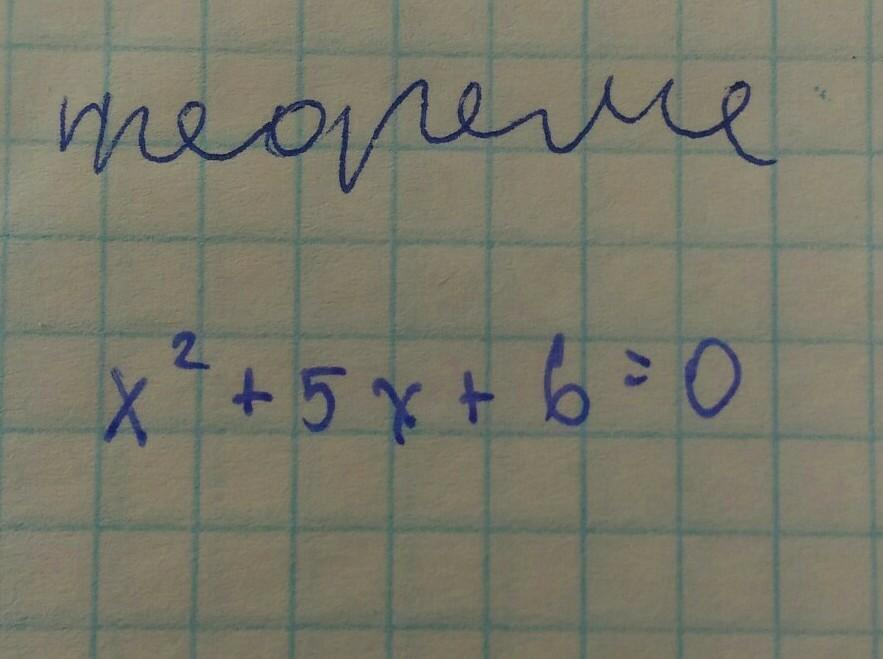 теореме
x² + 5x + 6 = 0